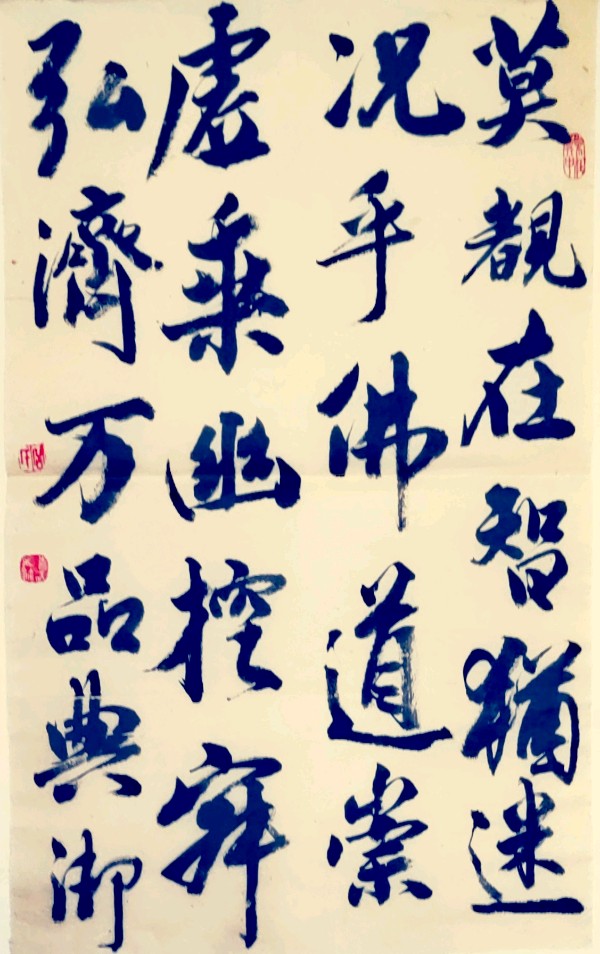 莫覩在智猶迷
况乎佛道崇
虛乘幽控寂
弘濟万品典御